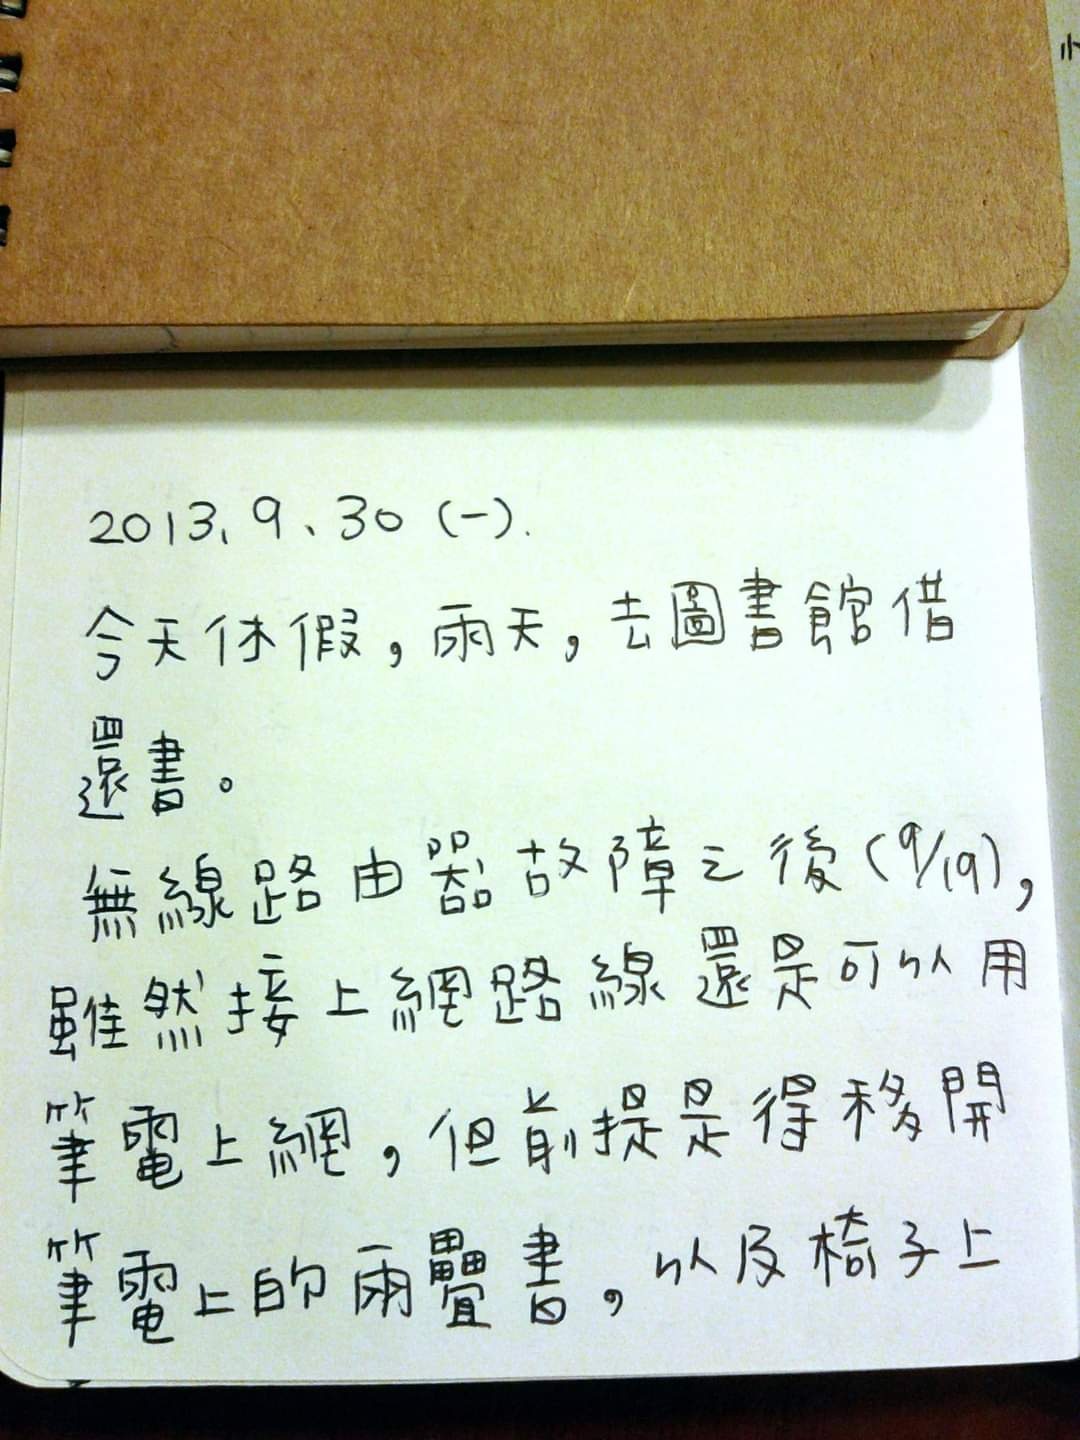 2013、9、30 (一).
今天休假，雨天，去圖書館借
還書。
無線路由器故障之後(9/19)，
雖然接上網路線還是可以用
筆電上網，但前提是得移開
筆電上的兩疊書，以及椅子上